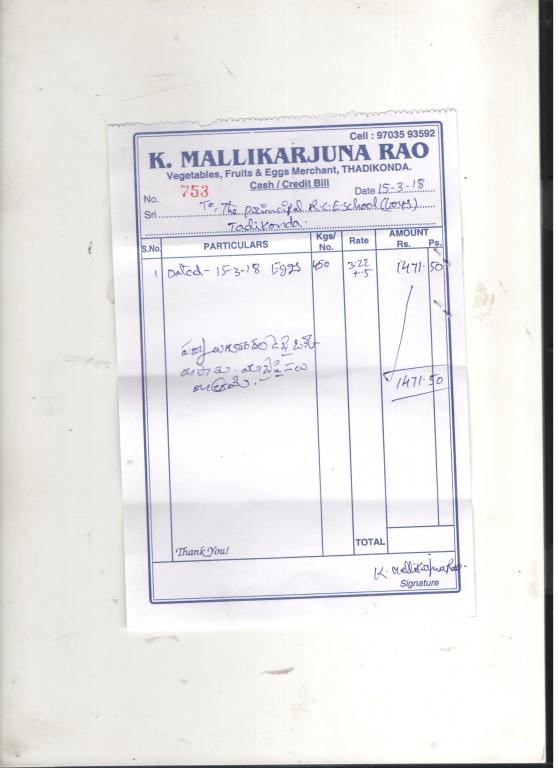 Cell : 97035 93592
K. MALLIKARJUNA RAO
Vegetables, Fruits & Eggs Merchant, THADIKONDA.
Cash / Credit Bill
No. 753 Date 15-3-18
Sri To, The principal A.P.R.School (Boys)
Tadikonda.
S.No. PARTICULARS Kgs/ No. Rate AMOUNT Rs. Ps.
1 Dated- 15-3-18 Eggs 450 3.22 1471.50
+.5
1471.50
Thank You! TOTAL
K. Mallikarjuna Rao.
Signature